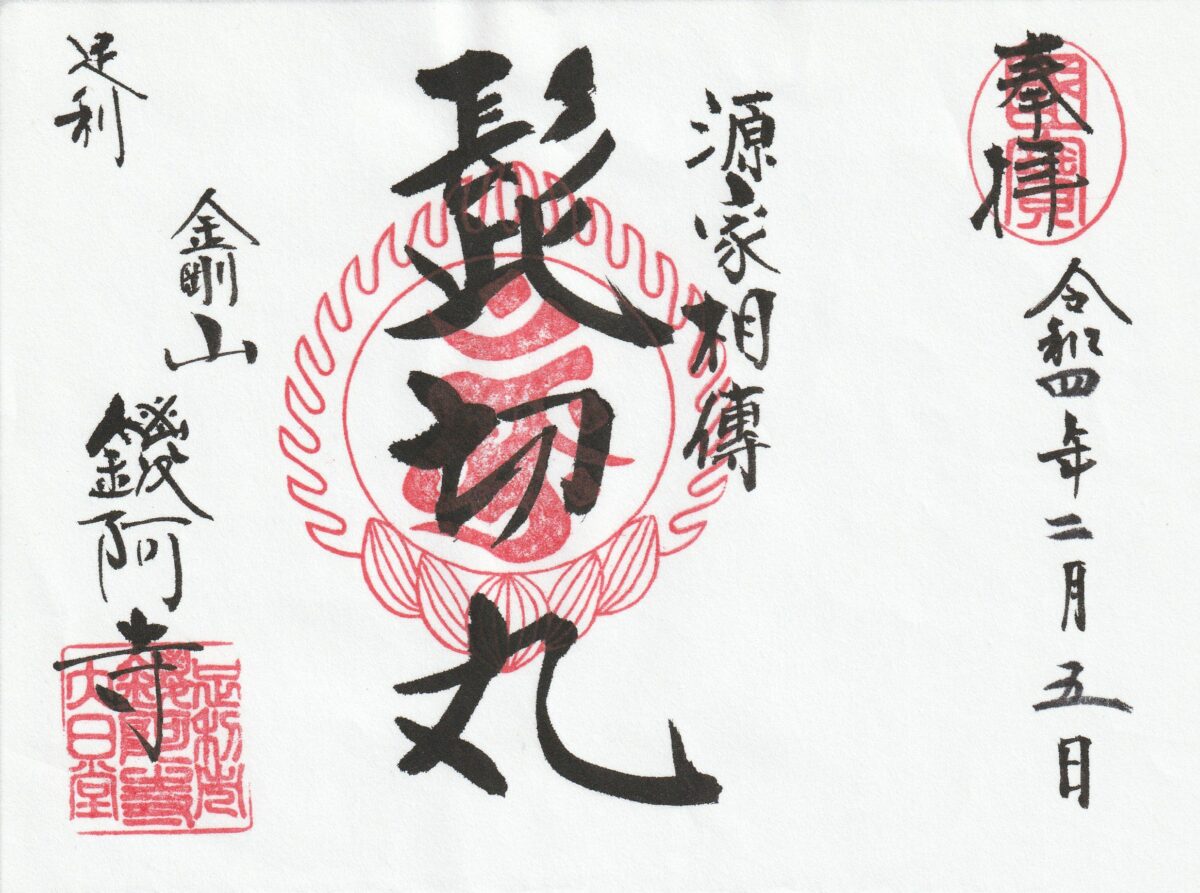 奉拝
令和四年二月五日
源家相傳
髭切丸
足利
金剛山
鑁阿寺
足利市
鑁阿寺
大日堂